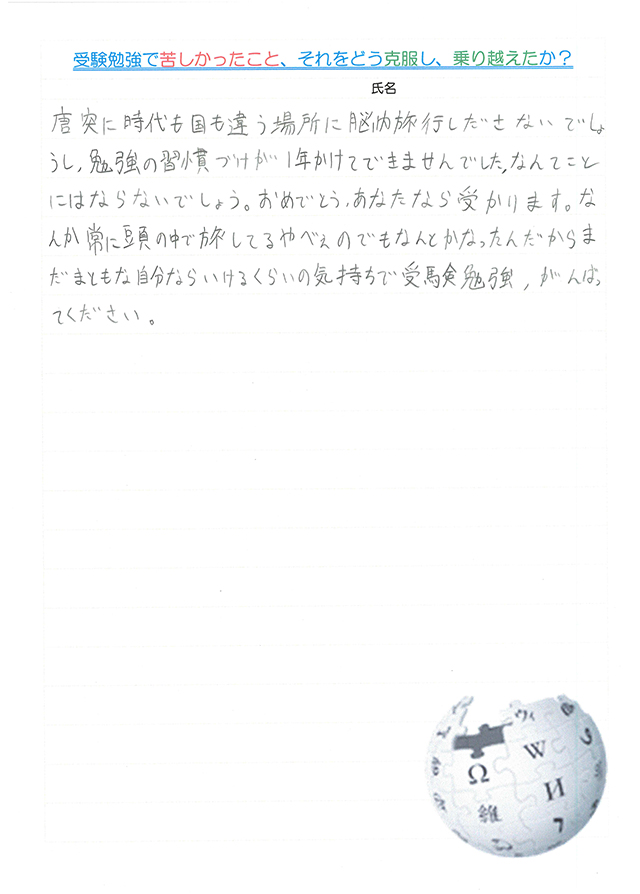 受験勉強で苦しかったこと、それをどう克服し、乗り越えたか？
氏名
唐突に時代も国も違う場所に脳内旅行しださないでしょ
うし、勉強の習慣づけが1年かけてできませんでした、なんてこと
にはならないでしょう。おめでとう、あなたなら受かります。な
んか常に頭の中で旅してるやべぇのでもなんとかなったんだからま
だまともな自分ならいけるくらいの気持ちで受験勉強、がんばっ
てください。
ウィ
Ω
W
И
維
7